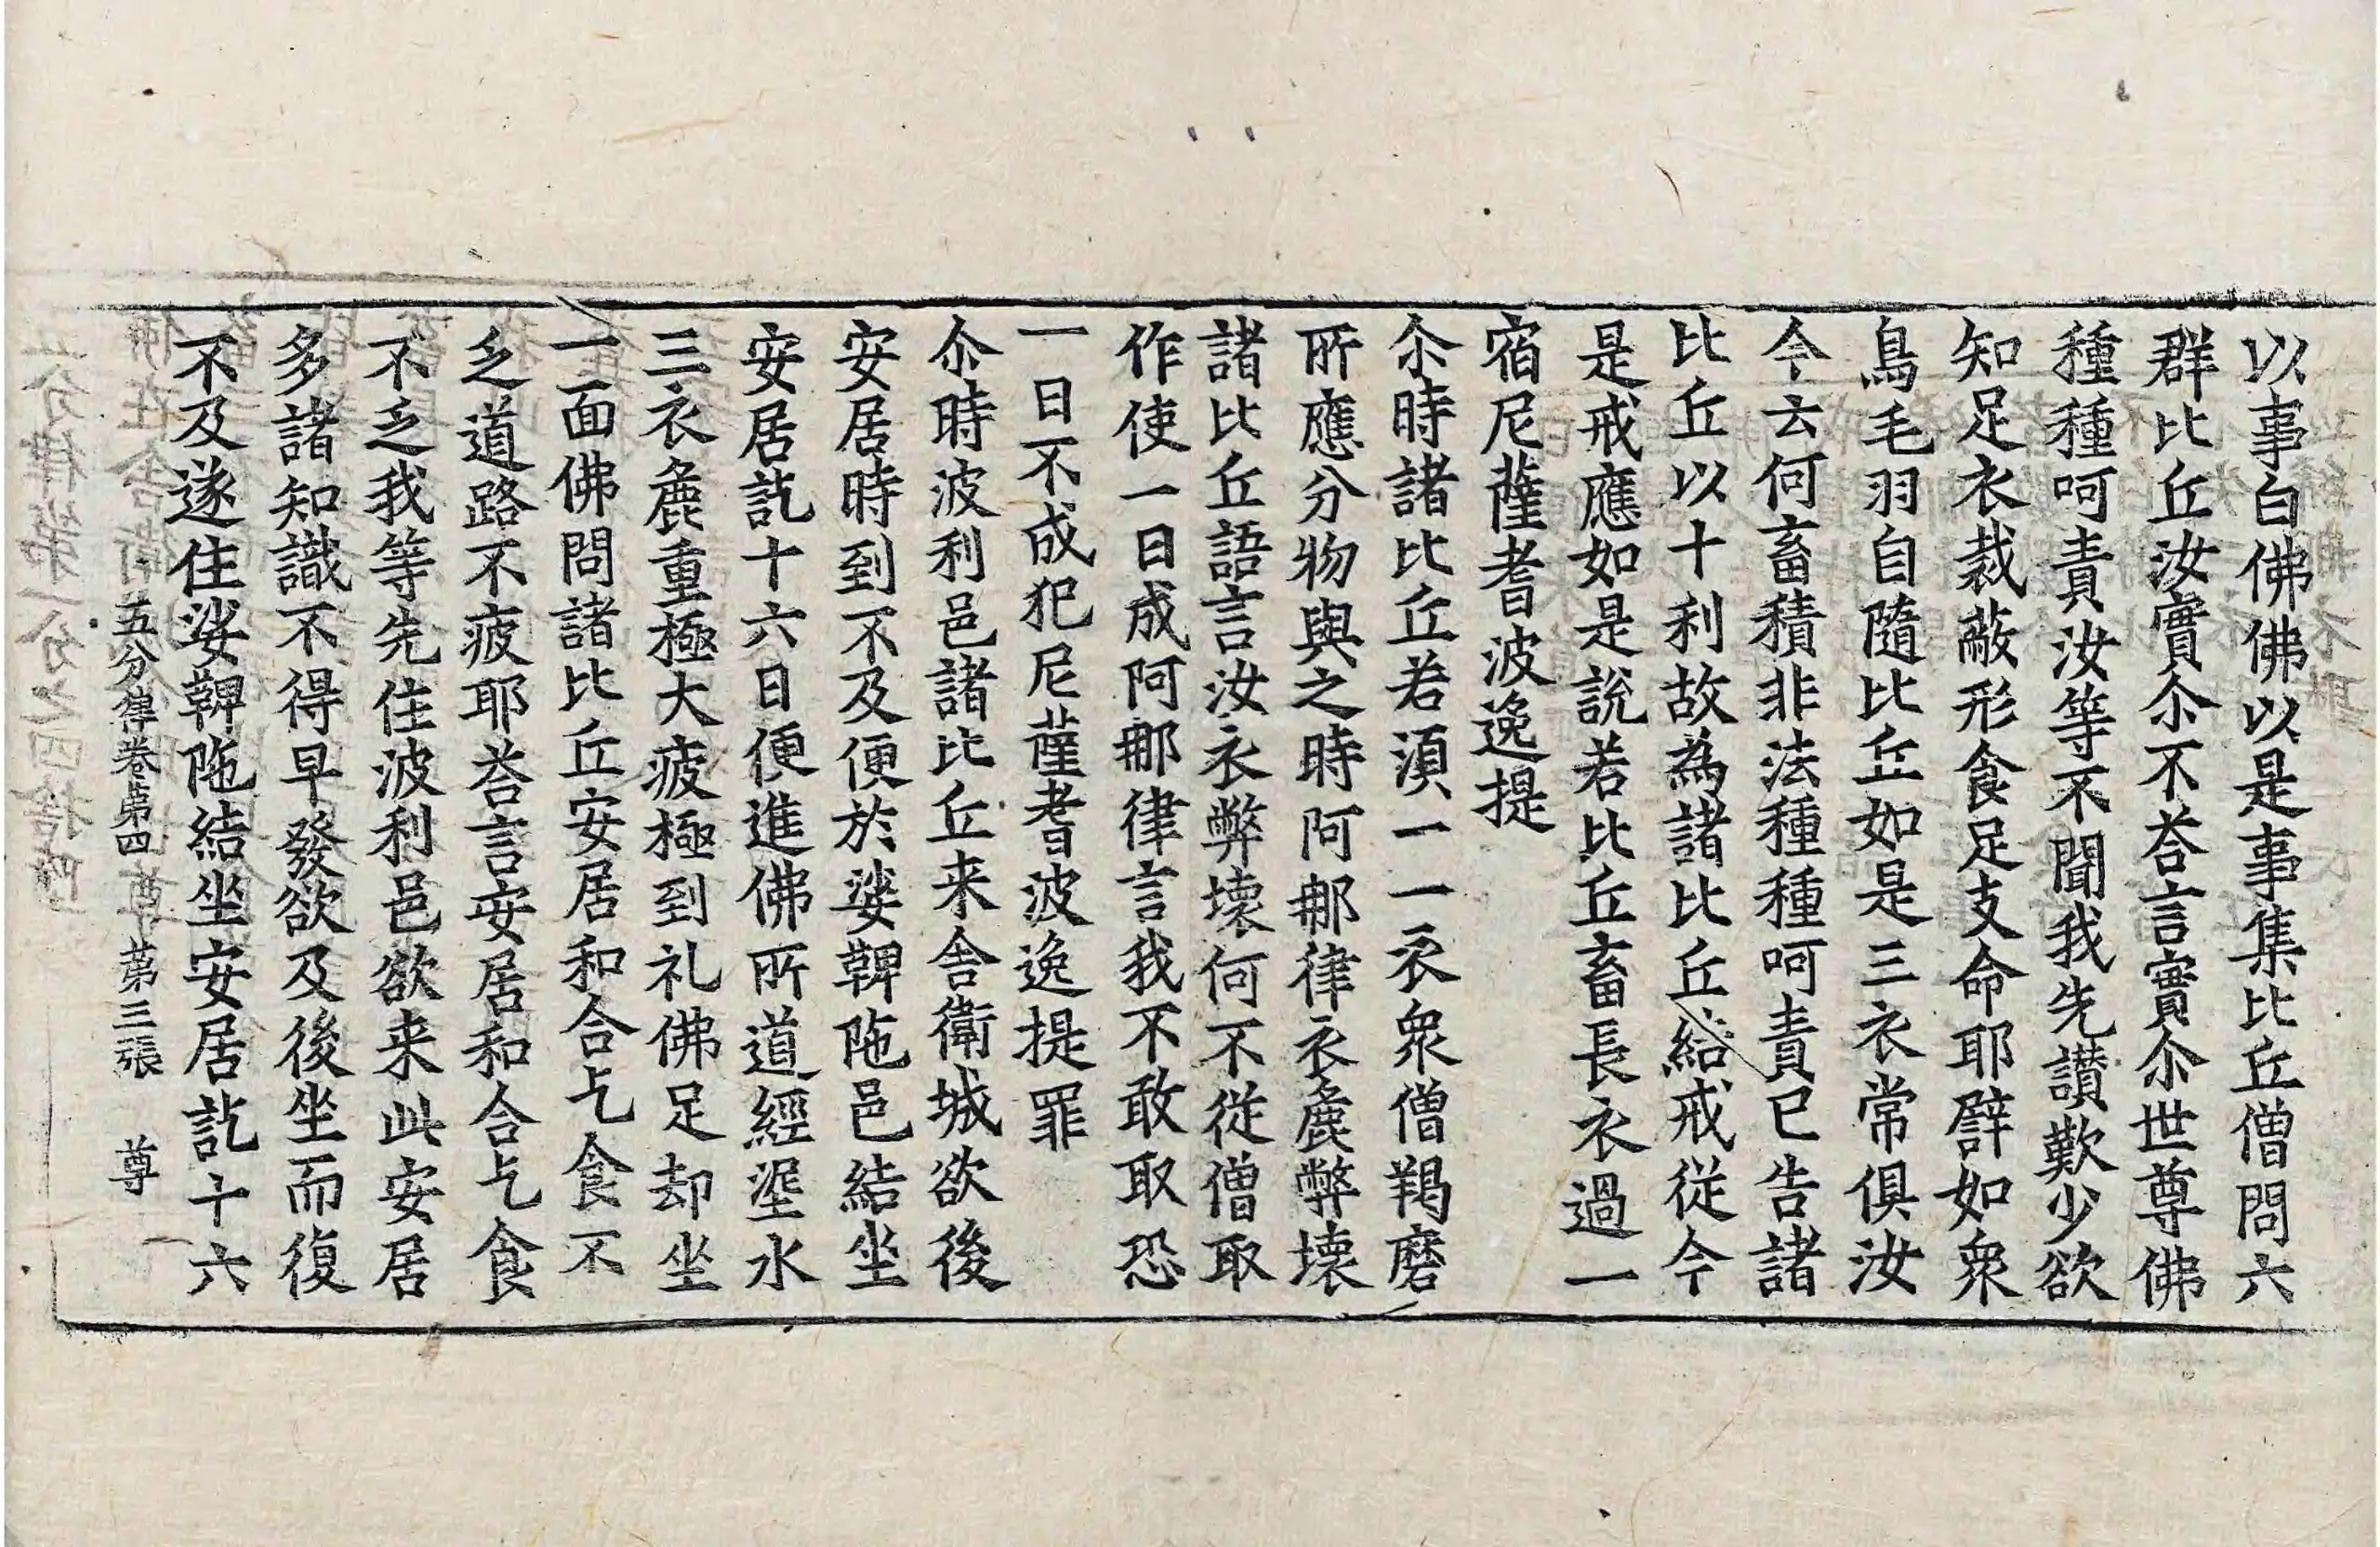 以事白佛佛以是事集比丘僧問六
群比丘汝實尒不荅言實尒世尊佛
種種呵責汝等不聞我先讃歎少欲
知足衣裁蔽形食足支命耶譬如衆
鳥毛羽自隨比丘如是三衣常俱汝
今云何畜積非法種種呵責已告諸
比丘以十利故為諸比丘結戒從今
是戒應如是說若比丘畜長衣過一
宿尼薩耆波逸提
尒時諸比丘若須一一衣衆僧羯磨
所應分物與之時阿那律衣麁弊壞
諸比丘語言汝衣弊壞何不從僧取
作使一日成阿那律言我不敢取恐
一日不成犯尼薩耆波逸提罪
尒時波利邑諸比丘来舍衛城欲後
安居時到不及便於娑鞞陁邑結坐
安居訖十六日便進佛所道經埿水
三衣麁重極大疲極到礼佛足却坐
一面佛問諸比丘安居和合乞食不
乏道路不疲耶荅言安居和合乞食
不乏我等先住波利邑欲来此安居
多諸知識不得早發欲及後坐而復
不及遂住娑鞞陁結坐安居訖十六
五分律卷第四 尊 第三張 尊